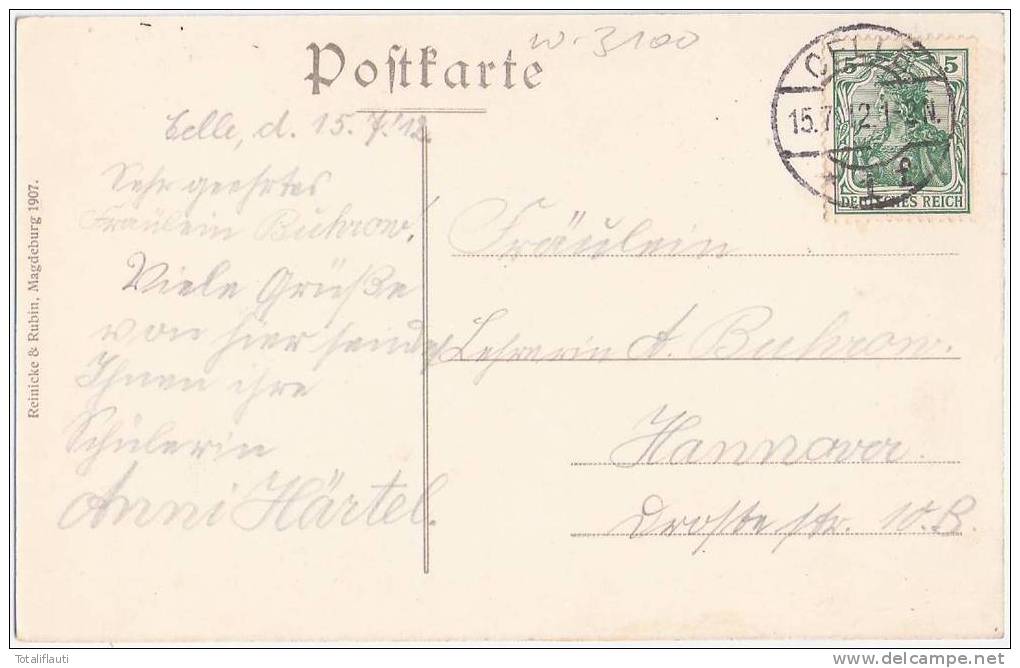 Postkarte
W-3100
CELLE
15.7.12.1-2N.
5 5
DEUTSCHES REICH
Reinicke & Rubin, Magdeburg 1907.
Celle, d. 15.7.12.
Sehr geehrtes
Fräulein Buhrow!
Viele Grüße
von hier sendet
Ihnen ihre
Schülerin
Anni Härtel.
Fräulein
Lehrerin A. Buhrow.
Hannover
Drostestr. 10.B.
Totaliflauti
delcampe.net